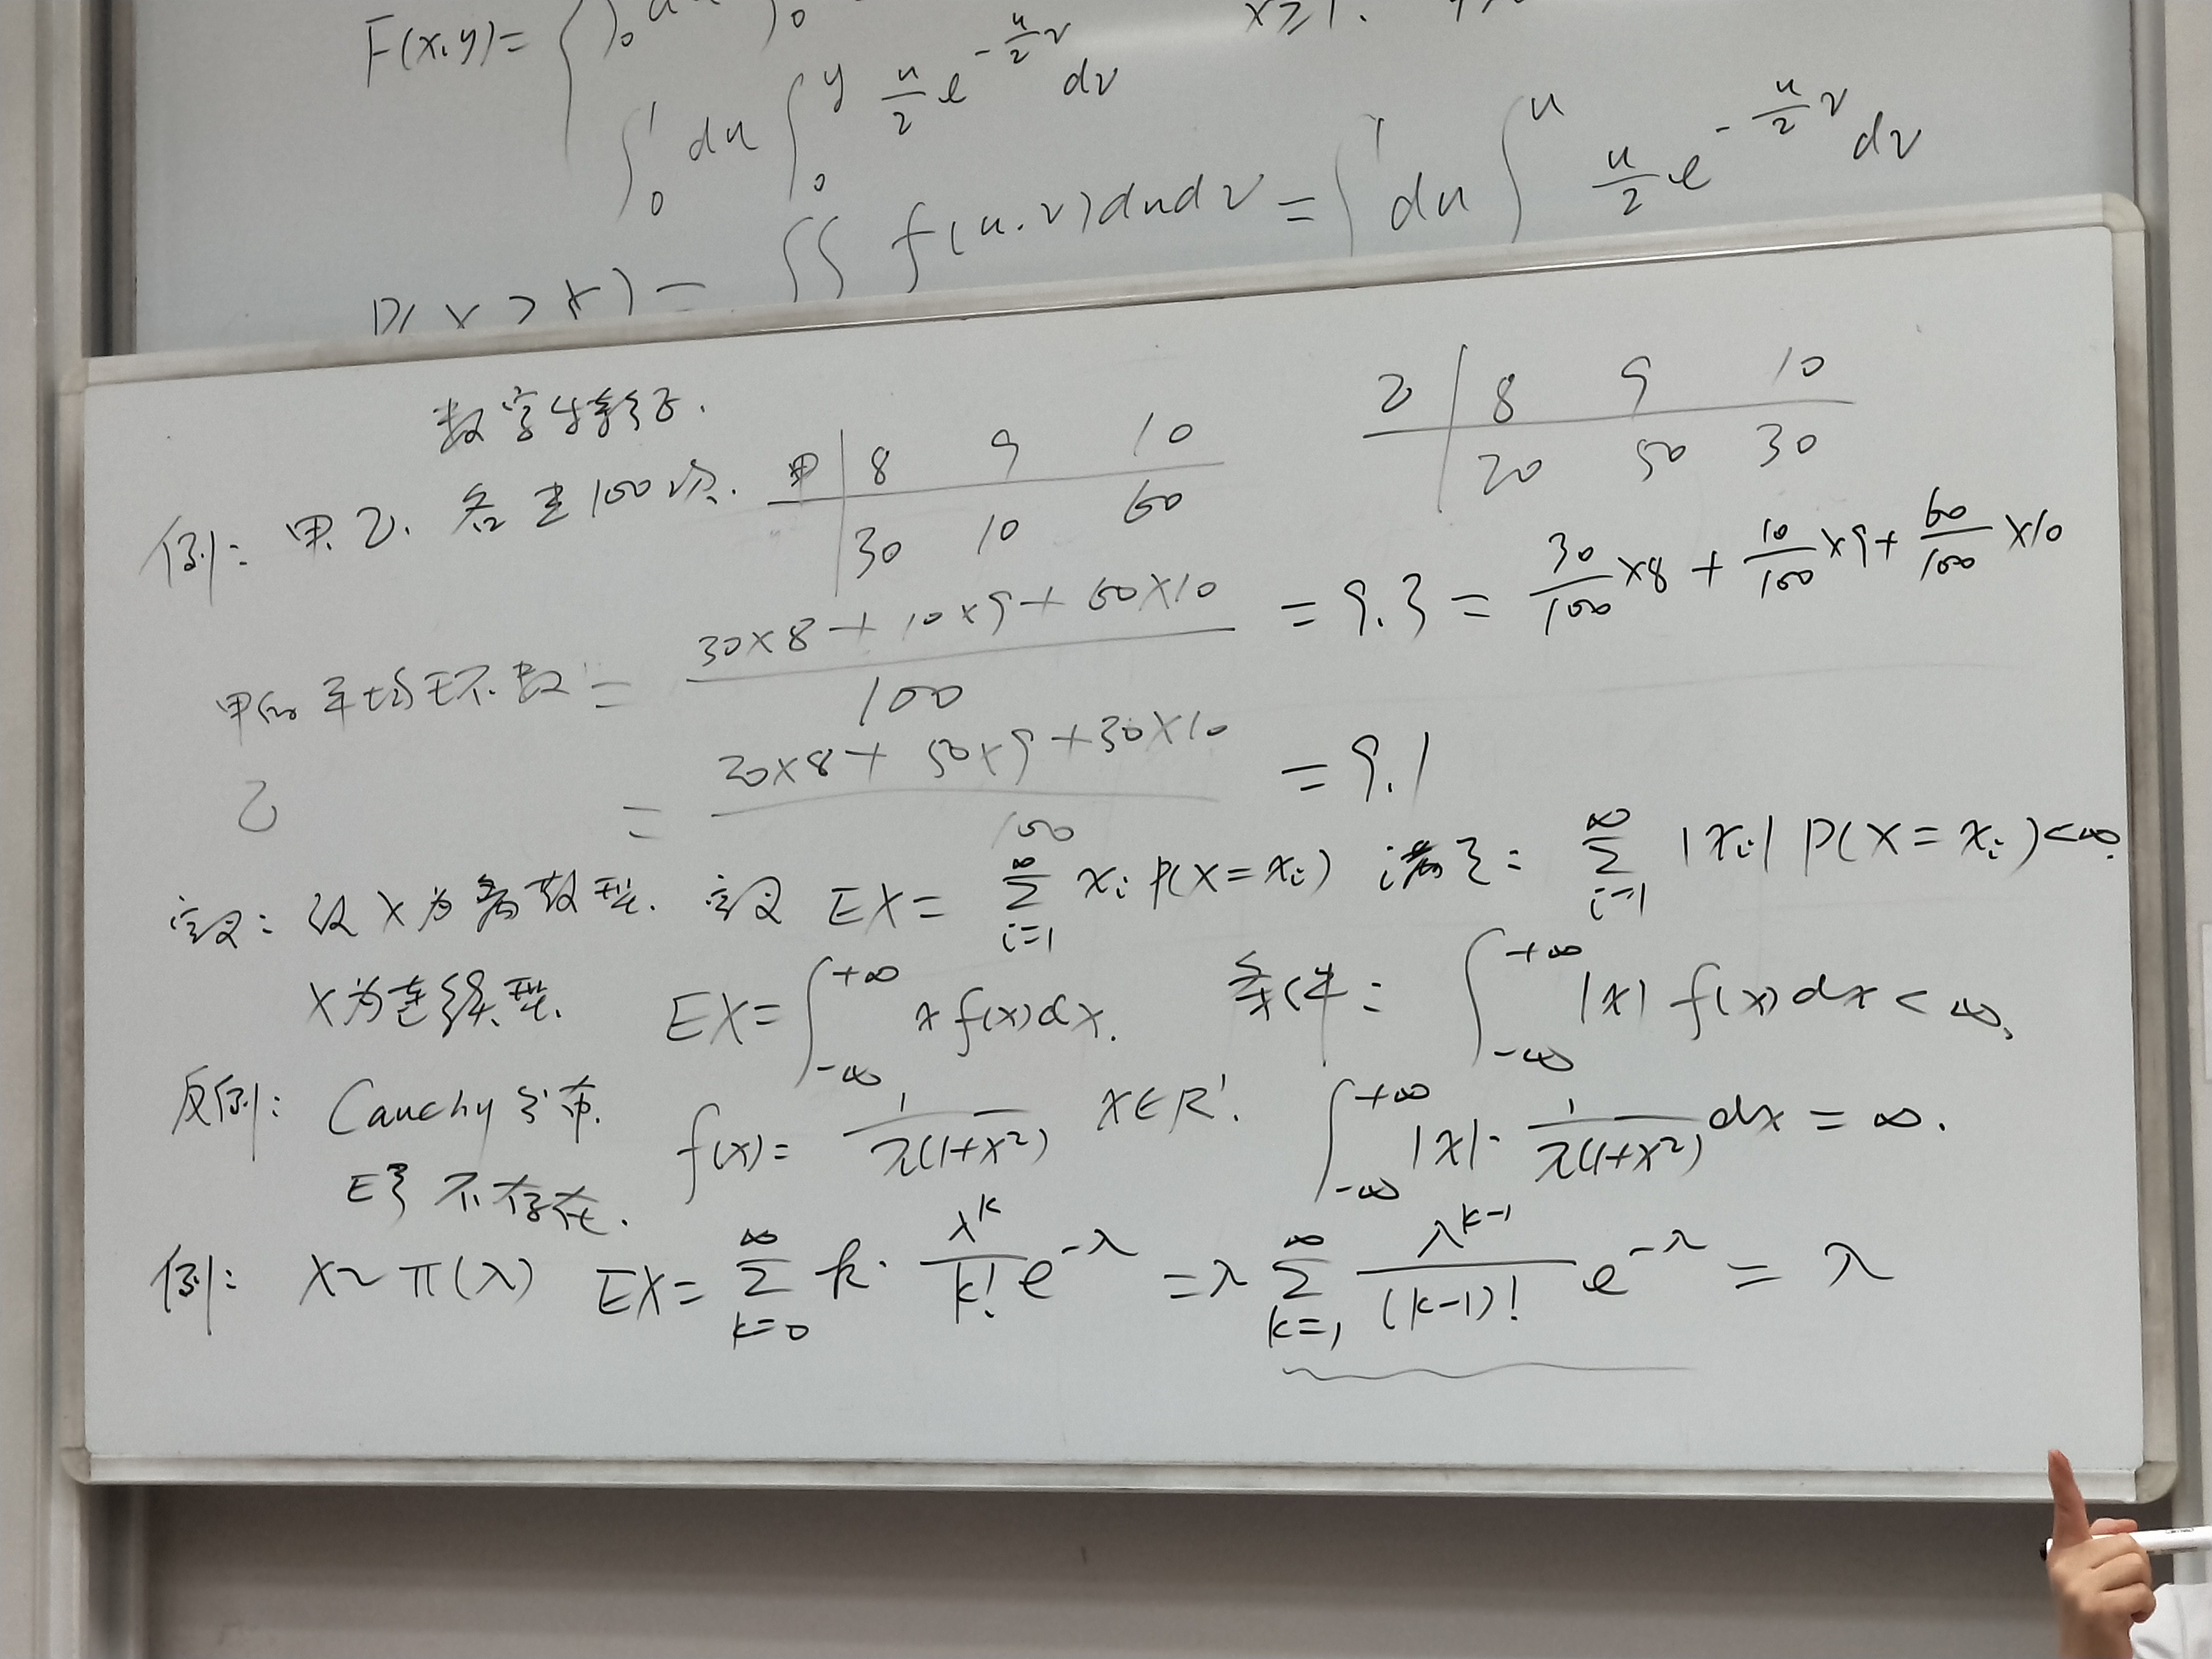 F(x,y)= { ∫₀ du ∫₀ x≥1.
∫₀¹ du ∫₀^y u/2 e^{-u/2 v} dv
P(Y>X) = ∬ f(u.v)dudv = ∫¹ du ∫^u u/2 e^{-u/2 v} dv
数字特征.
例: 甲.乙. 各 100次. 甲 | 8 9 10
30 10 60
乙 | 8 9 10
20 50 30
甲的平均环数 = (30×8+10×9+60×10)/100 = 9.3 = 30/100×8 + 10/100×9 + 60/100×10
乙 = (20×8+50×9+30×10)/100 = 9.1
定义: 设X为离散型. 定义 EX = ∑_{i=1}^∞ x_i P(X=x_i) 满足: ∑_{i=1}^∞ |x_i| P(X=x_i)<∞.
X为连续型. EX=∫_{-∞}^{+∞} x f(x)dx. 条件: ∫_{-∞}^{+∞} |x| f(x)dx<∞.
反例: Cauchy分布. f(x)= 1/π(1+x²) x∈R¹. ∫_{-∞}^{+∞} |x|· 1/π(1+x²) dx = ∞.
Eξ 不存在.
例: X~π(λ) EX= ∑_{k=0}^∞ k· λ^k/k! e^{-λ} =λ ∑_{k=1}^∞ λ^{k-1}/(k-1)! e^{-λ} = λ